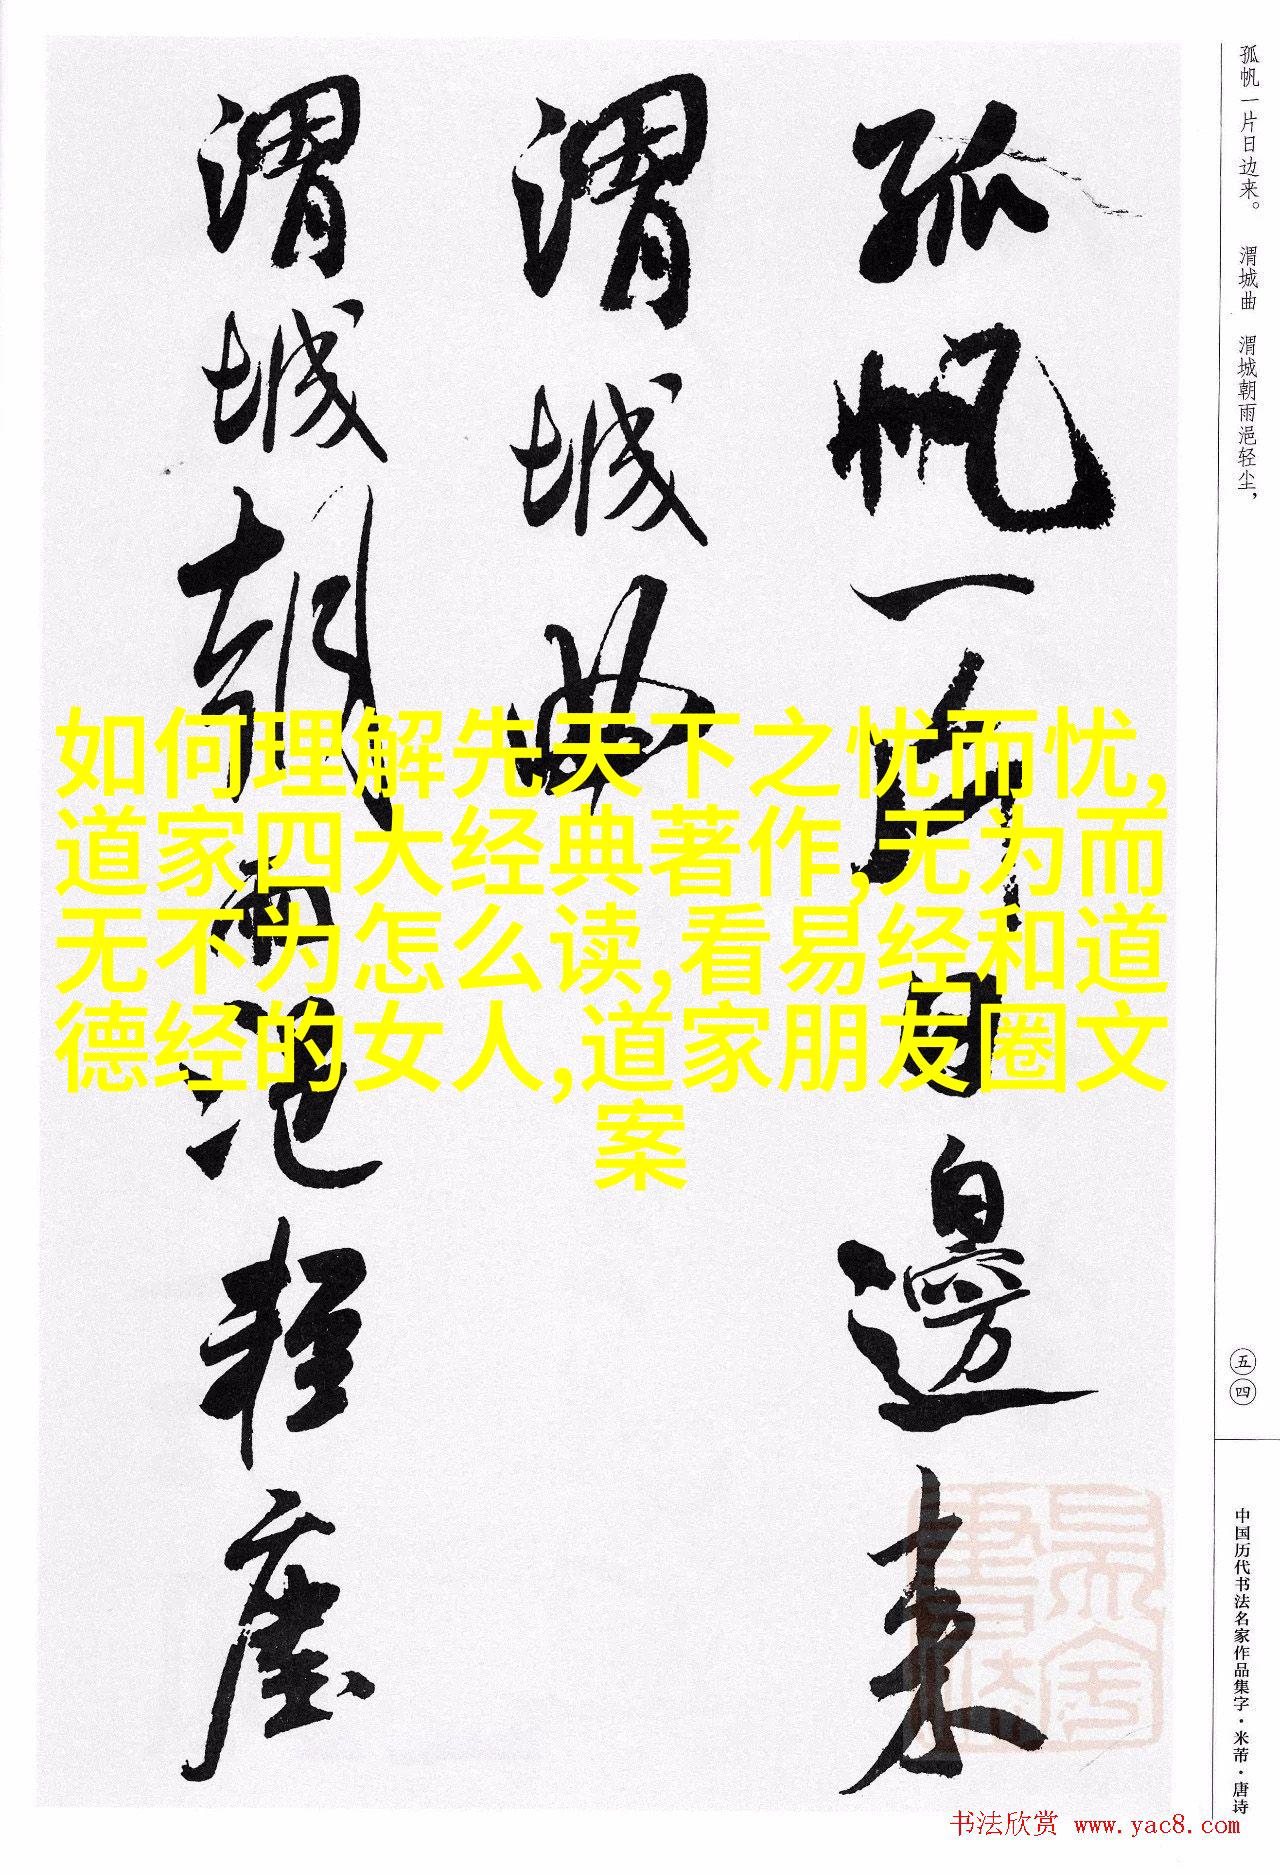 孤帆一片日边来。 渭城曲 渭城朝雨浥轻尘，
孤帆一片日邊来
渭城曲
渭城朝雨浥轻塵
如何理解先天下之忧而忧,
道家四大经典著作,无为而
无不为怎么读,看易经和道
德经的女人,道家朋友圈文
案
五四
中国历代书法名家作品集字·米芾·唐诗
书法欣赏 www.yac8.com